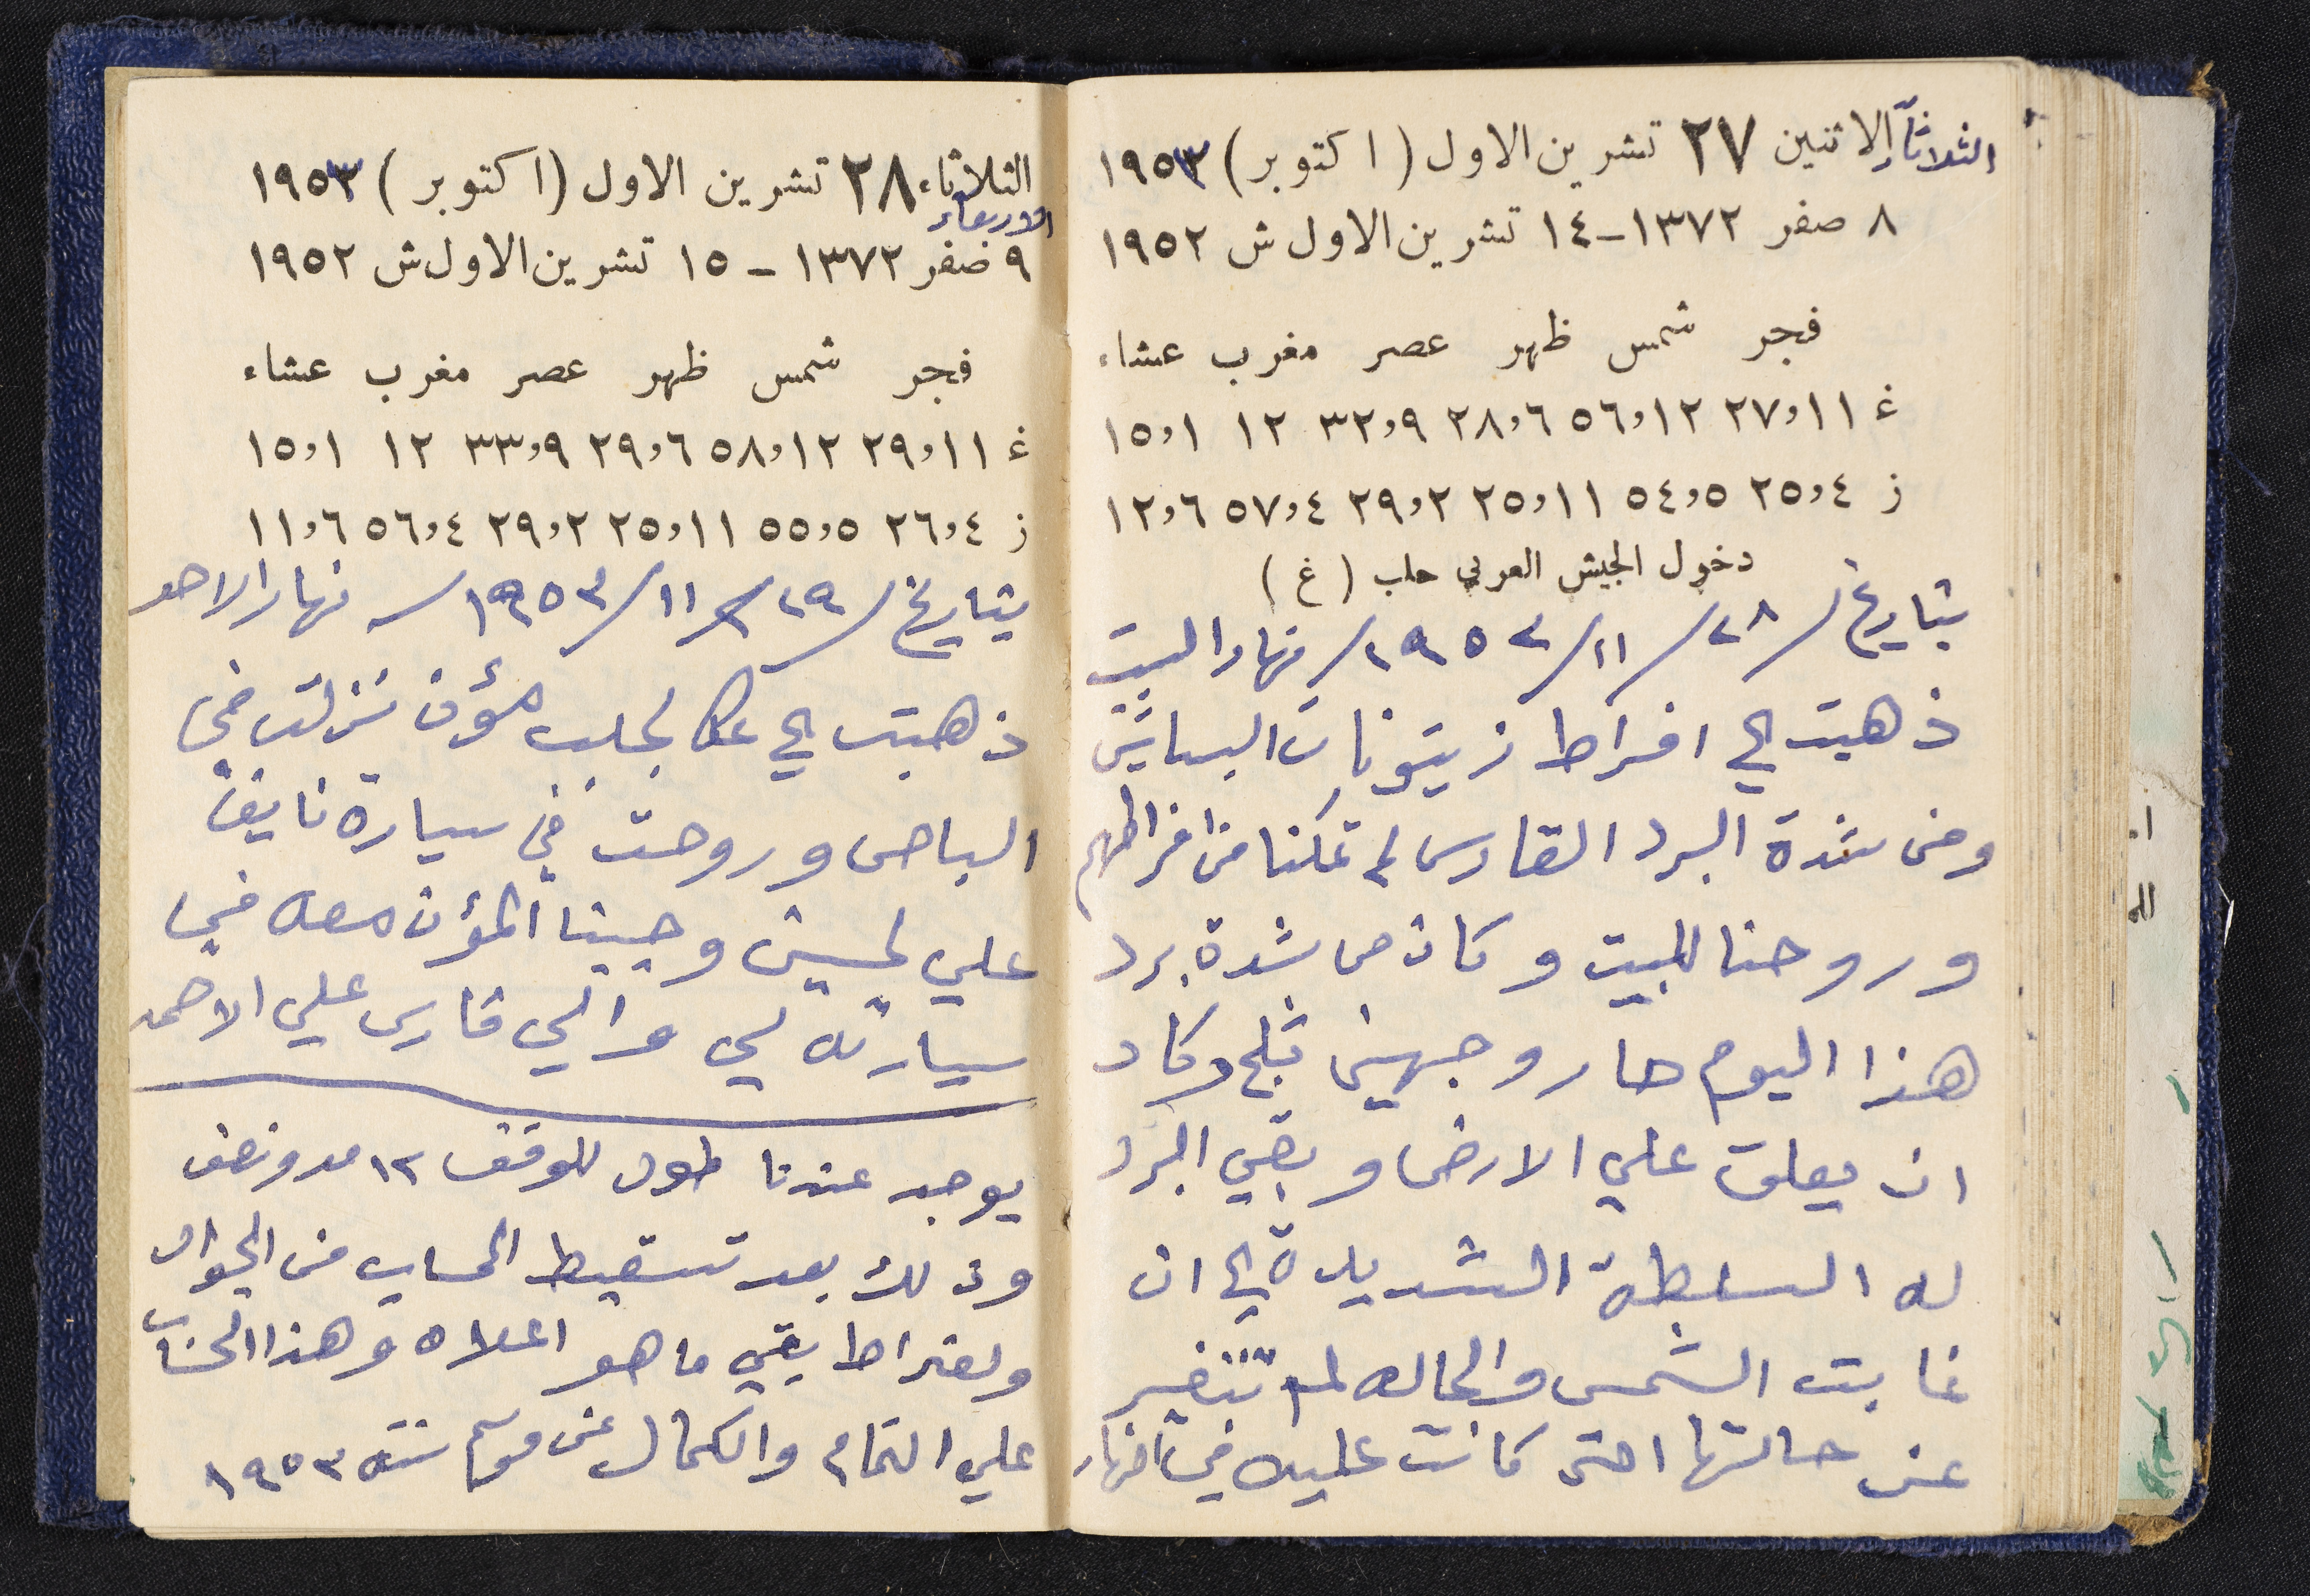 الثلاثاء الاثنين ٢٧ تشرين الاول (اكتوبر) ١٩٥٣
٨ صفر ١٣٧٢-١٤ تشرين الاول ش ١٩٥٢
فجر شمس ظهر عصر مغرب عشاء
غ ٢٧,١١ ٥٦,١٢ ٢٨,٦ ٣٢,٩ ١٢ ١٥,١
ز ٢٥,٤ ٥٤,٥ ٢٥,١١ ٢٩,٢ ٥٧,٤ ١٢,٦
دخول الجيش العربي حلب (غ)
بتاريخ ٢٨/١١/١٩٥٣ نهار السبت
ذهبت الى افراط زيتونات البساتين
ومن شدة البرد القارس لم تمكنا من افراطهم
وروحنا للبيت وكان من شدة برد
هذا اليوم صار وجهين ثلج وكاد
ان يعلق علي الارض وبقي البرد
له السلطة الشديدة الى ان
غابت الشمس والحاله لم تتغير
عن حالتها التى كانت عليه في النهار
الثلاثاء ٢٨ تشرين الاول (اكتوبر) ١٩٥٣
الاربعاء
٩ صفر ١٣٧٢ - ١٥ تشرين الاول ش ١٩٥٢
فجر شمس ظهر عصر مغرب عشاء
غ ٢٩,١١ ٥٨,١٢ ٢٩,٦ ٣٣,٩ ١٢ ١٥,١
ز ٢٦,٤ ٥٥,٥ ٢٥,١١ ٢٩,٢ ٥٦,٤ ١١,٦
بتاريخ ٢٩/١١/١٩٥٣ نهار الاحد
ذهبت الى عكا لجلب مؤن نزلت في
الباص وروحت في سيارة نايف
علي لحسين وجبنا المؤن معه في
سيارته لي والي فارس علي الاحمد
يوجد عندنا طول للوقف ١٢ مد ونصف
وذلك بعد تسقيط الحساب من الجوال
ولفراط بقي ما هو اعلاه وهذا الحساب
علي التمام والكمال عن موسم سنة ١٩٥٣